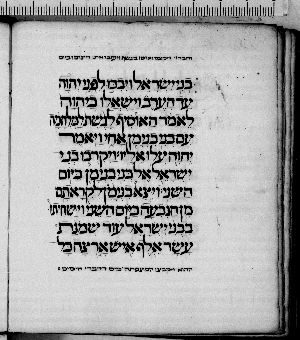 בני ישראל ויבכו לפני יהוה
עד הערב וישאלו ביהוה
לאמר האוסיף לגשת למלחמה
עם בני בנימן אחי ויאמר
יהוה עלו אליו ויקרבו בני
ישראל אל בני בנימן ביום
השני ויצא בנימן לקראתם
מן הגבעה ביום השני וישחיתו
בבני ישראל עוד שמנת
עשר אלף איש ארצה כל